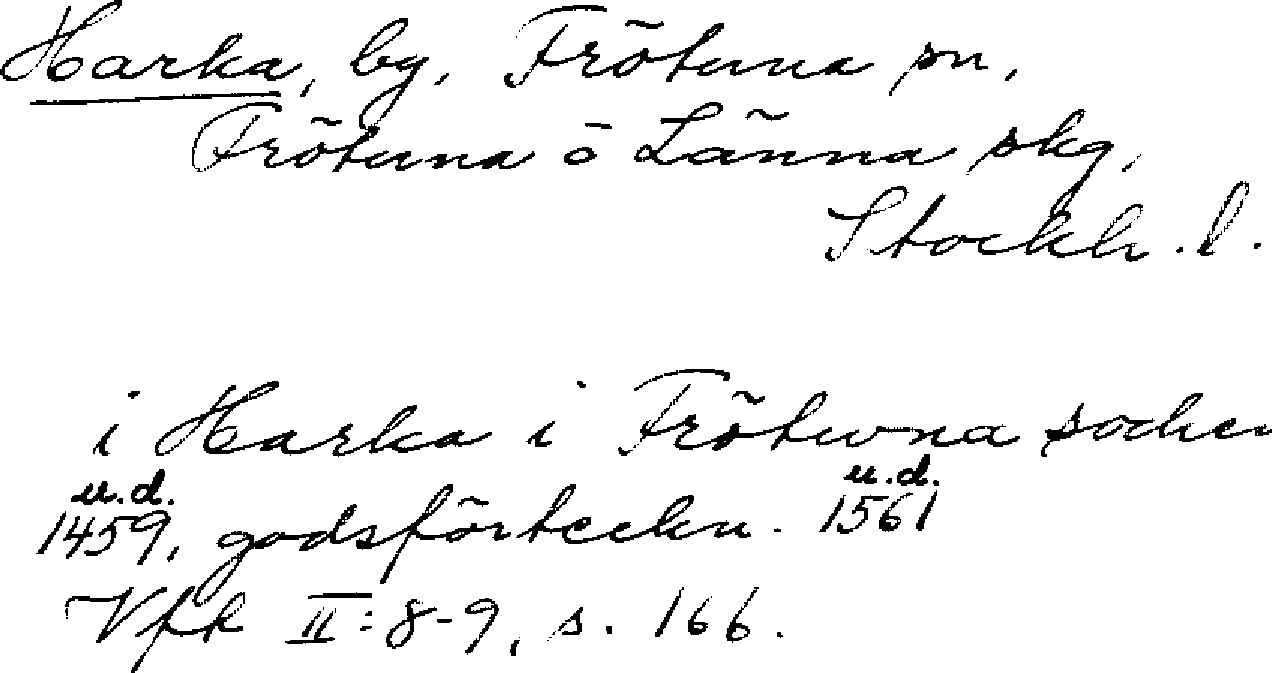 Harka, by, Frötuna sn,
Frötuna o Länna skg,
Stockh. l.
i Harka i Frötwna socken
u.d. u.d.
1459, godsförteckn. 1561
Vfk II:8-9, s. 166.